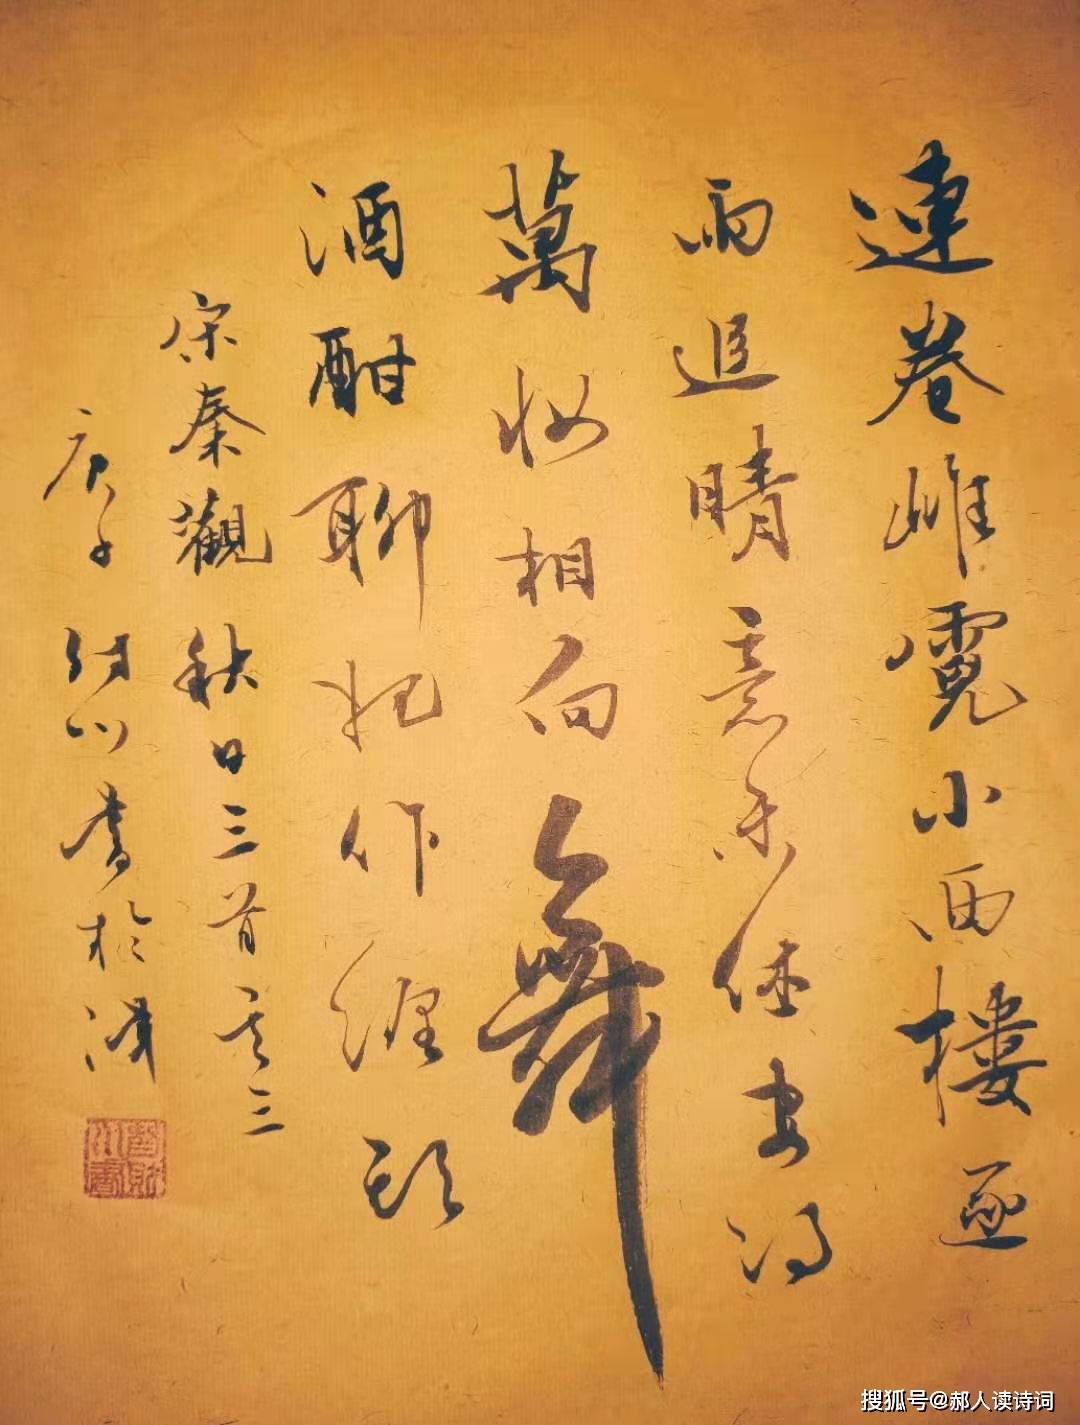 連卷雌霓小西樓逐
雨追晴意未休安得
萬妝相向舞
酒酣聊把作纏頭
宋秦觀秋日三首其三
庚子 川書於
搜狐号@郝人读诗词